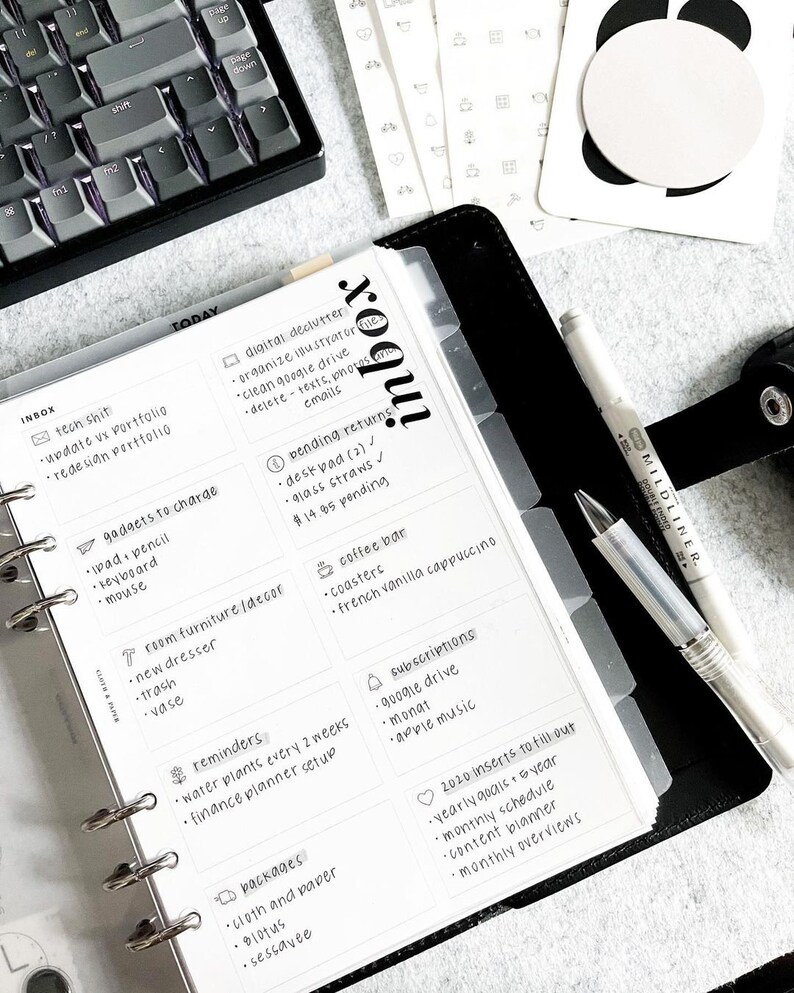 page
up
[ {
del
} ]
end
page
down
shift
/ ?
fn1
fn2
TODAY
inbox
INBOX
tech shit
• update ux portfolio
• redesign portfolio
digital declutter
• organize illustrator files
• clean google drive
• delete - texts, photos and
emails
gadgets to charge
• ipad + pencil
• keyboard
• mouse
pending returns
• desk pad (2) ✓
• glass straws ✓
$14.95 pending
room furniture/decor
• new dresser
• trash
• vase
coffee bar
• coasters
• french vanilla cappuccino
reminders
• water plants every 2 weeks
• finance planner setup
subscriptions
• google drive
• monat
• apple music
packages
• cloth and paper
• glotus
• sessavee
2020 inserts to fill out
• yearly goals + 5 year
• monthly schedule
• content planner
• monthly overviews
CLOTH & PAPER
MILDLINER™
DOUBLE ENDED